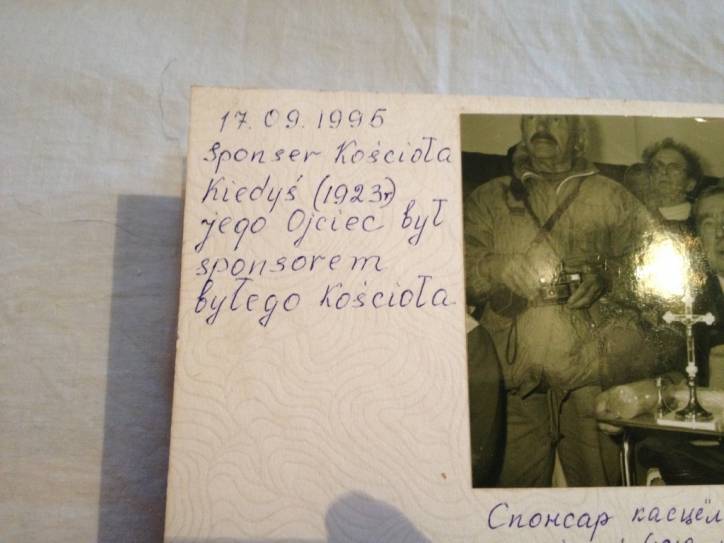 17.09.1995
Sponser Kościoła
Kiedyś (1923r)
jego Ojciec był
sponsorem
byłego Kościoła
Спонсар касцёл